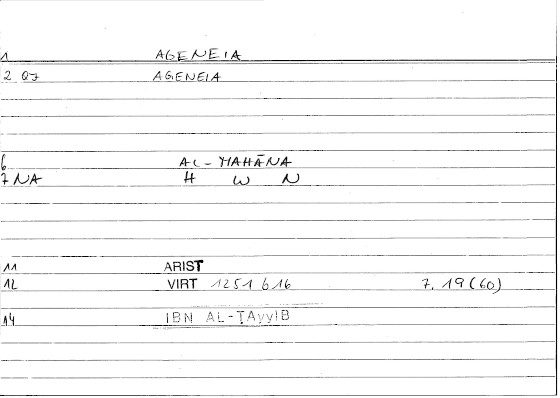 1 AGENEIA
2 07 AGENEIA
6 AL-MAHĀNA
7 NA H W N
11 ARIST
12 VIRT 1251 b 16 7. 19 (60)
14 IBN AL-ṬAyyIB